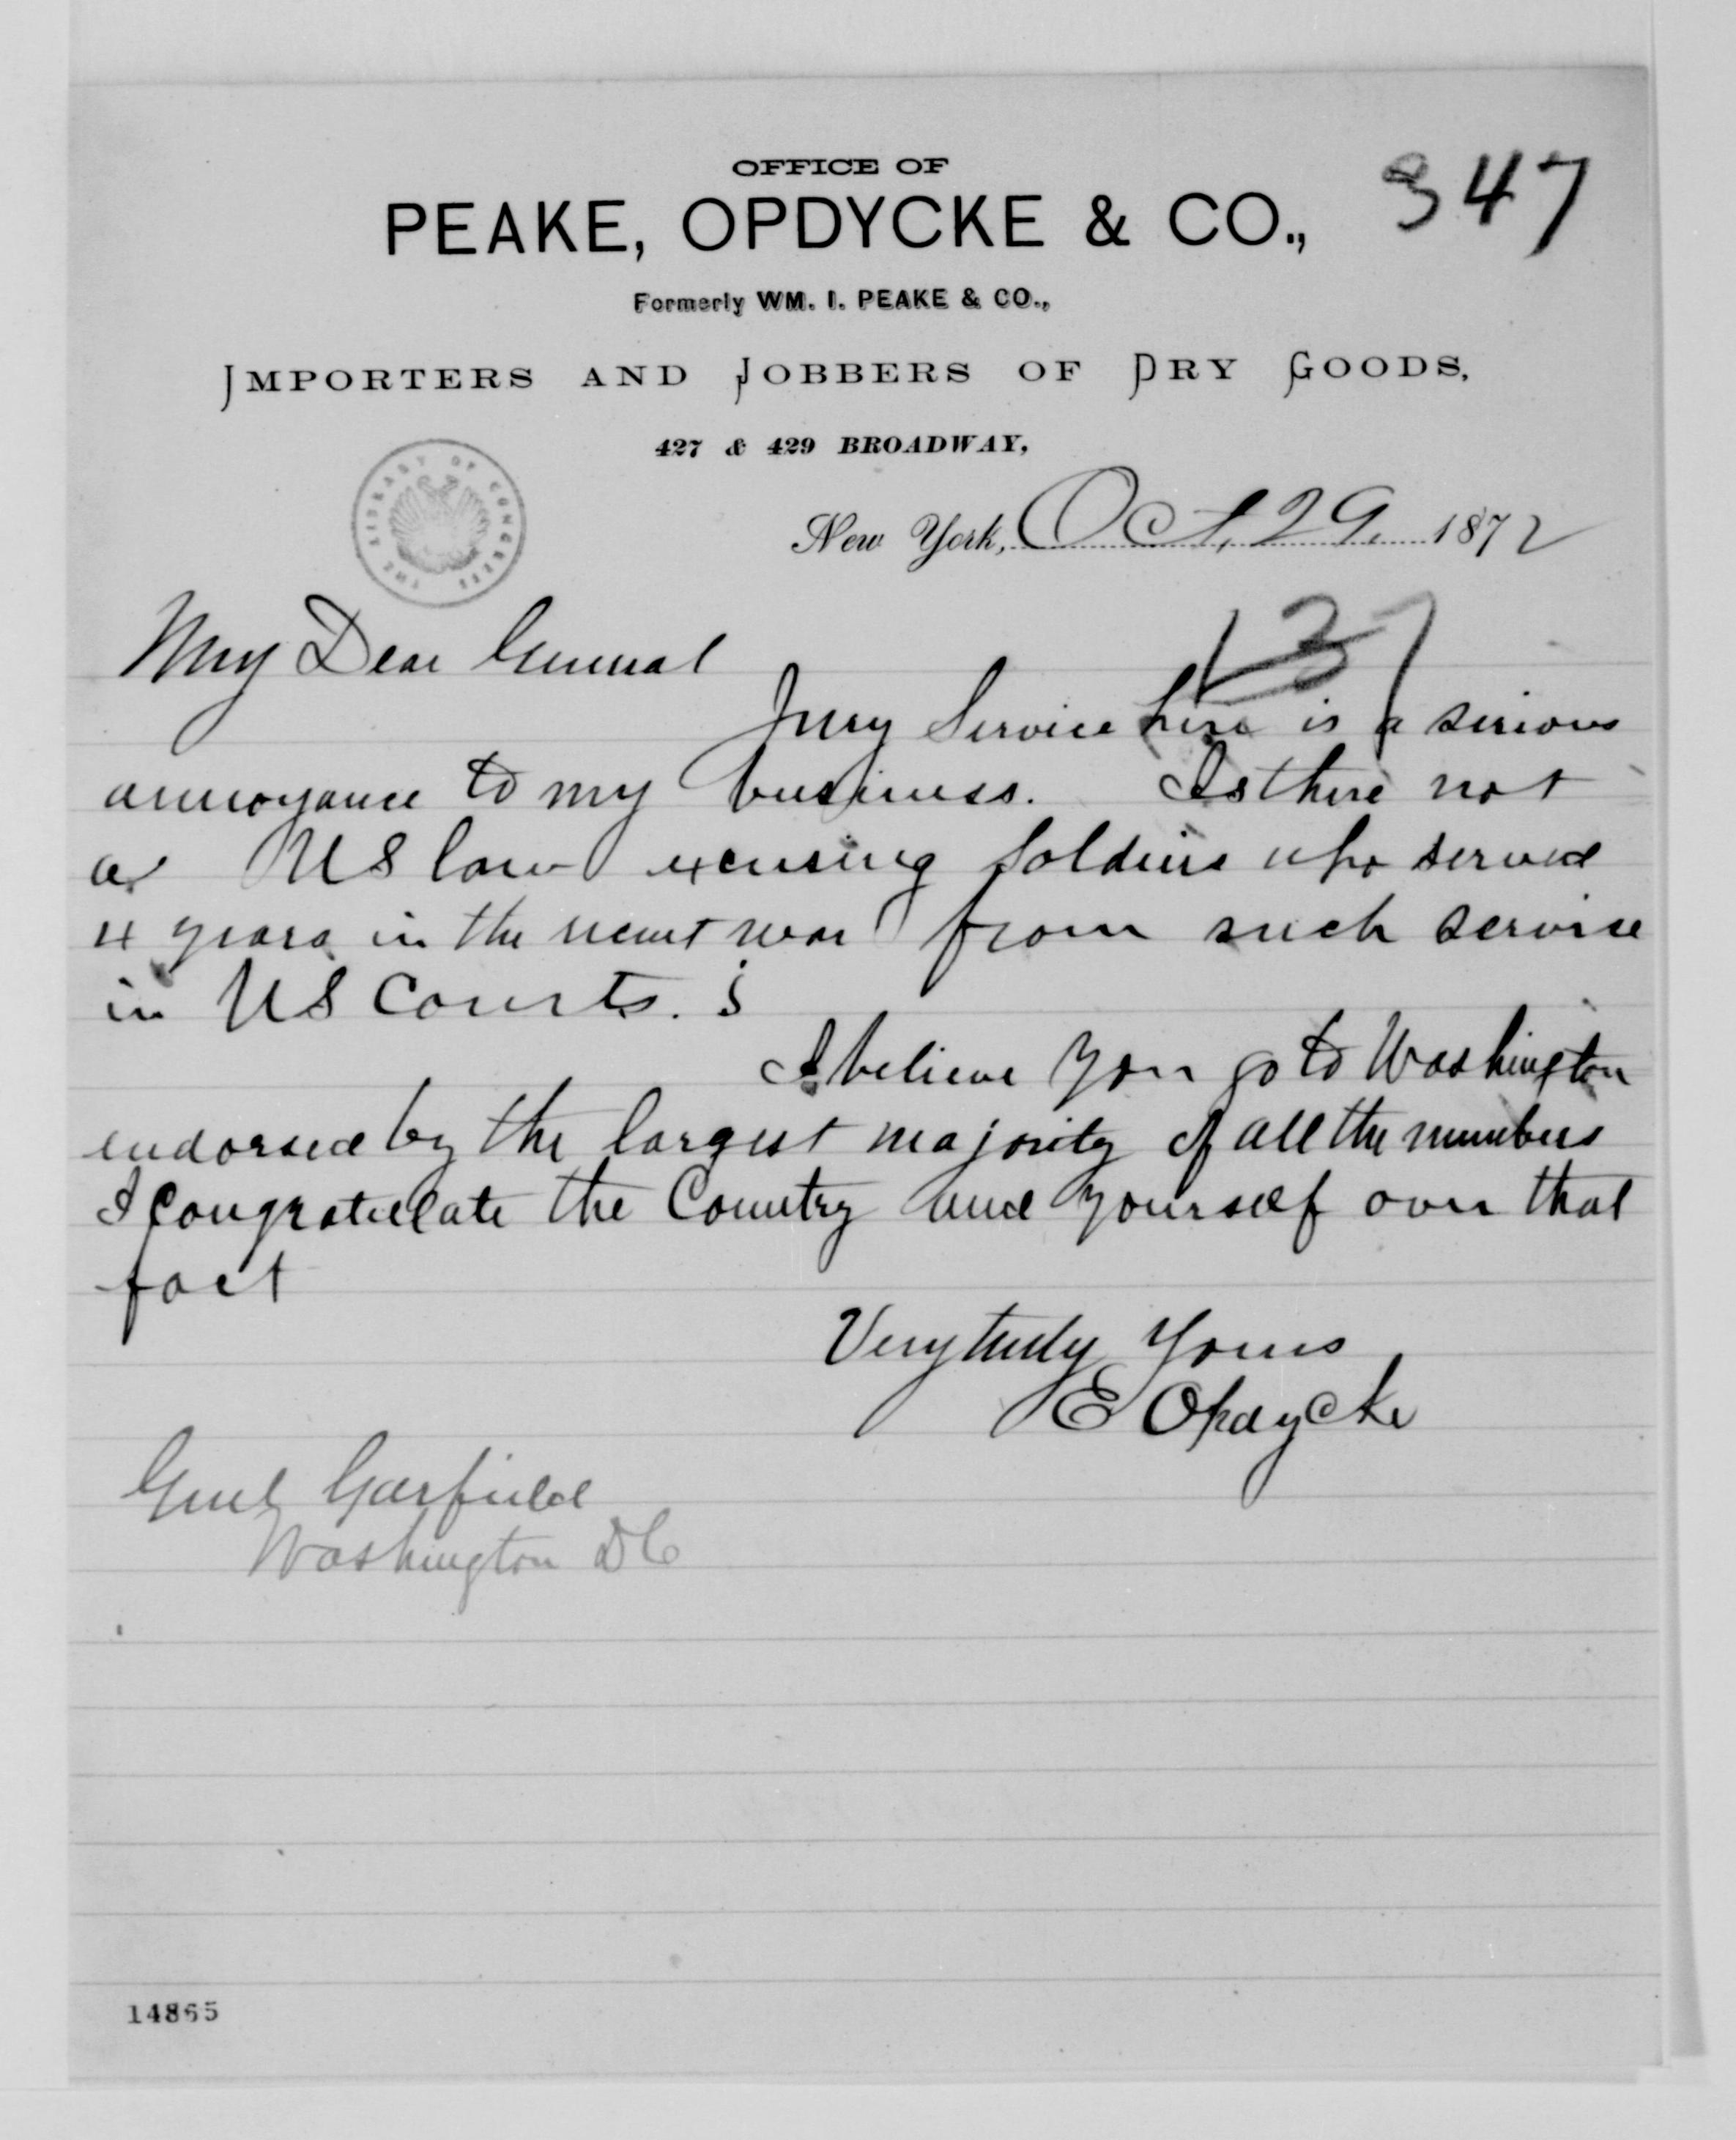 OFFICE OF
PEAKE, OPDYCKE & CO.,
347
Formerly WM. I. PEAKE & CO.,
IMPORTERS AND JOBBERS OF DRY GOODS,
427 & 429 BROADWAY,
THE LIBRARY OF CONGRESS
New York, Oct, 29, 1872
My Dear General
Jury Service here is a serious
annoyance to my business. Is there not
a US law excusing soldiers who served
4 years in the recent war from such service
in US Courts. ?
I believe you go to Washington
endorsed by the largest majority of all the members
I congratulate the Country and yourself over that
fact
Very truly Yours
E Opdycke
Genl Garfield
Washington DC
14865